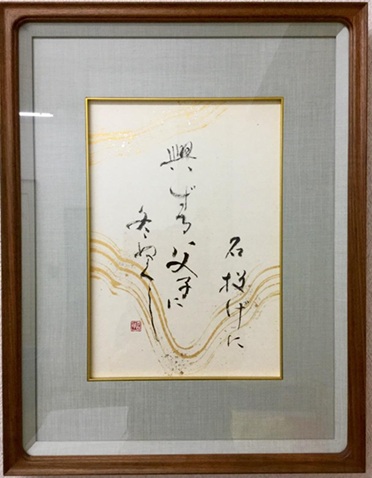 石投げに
興ずる父子に
冬ぬくし